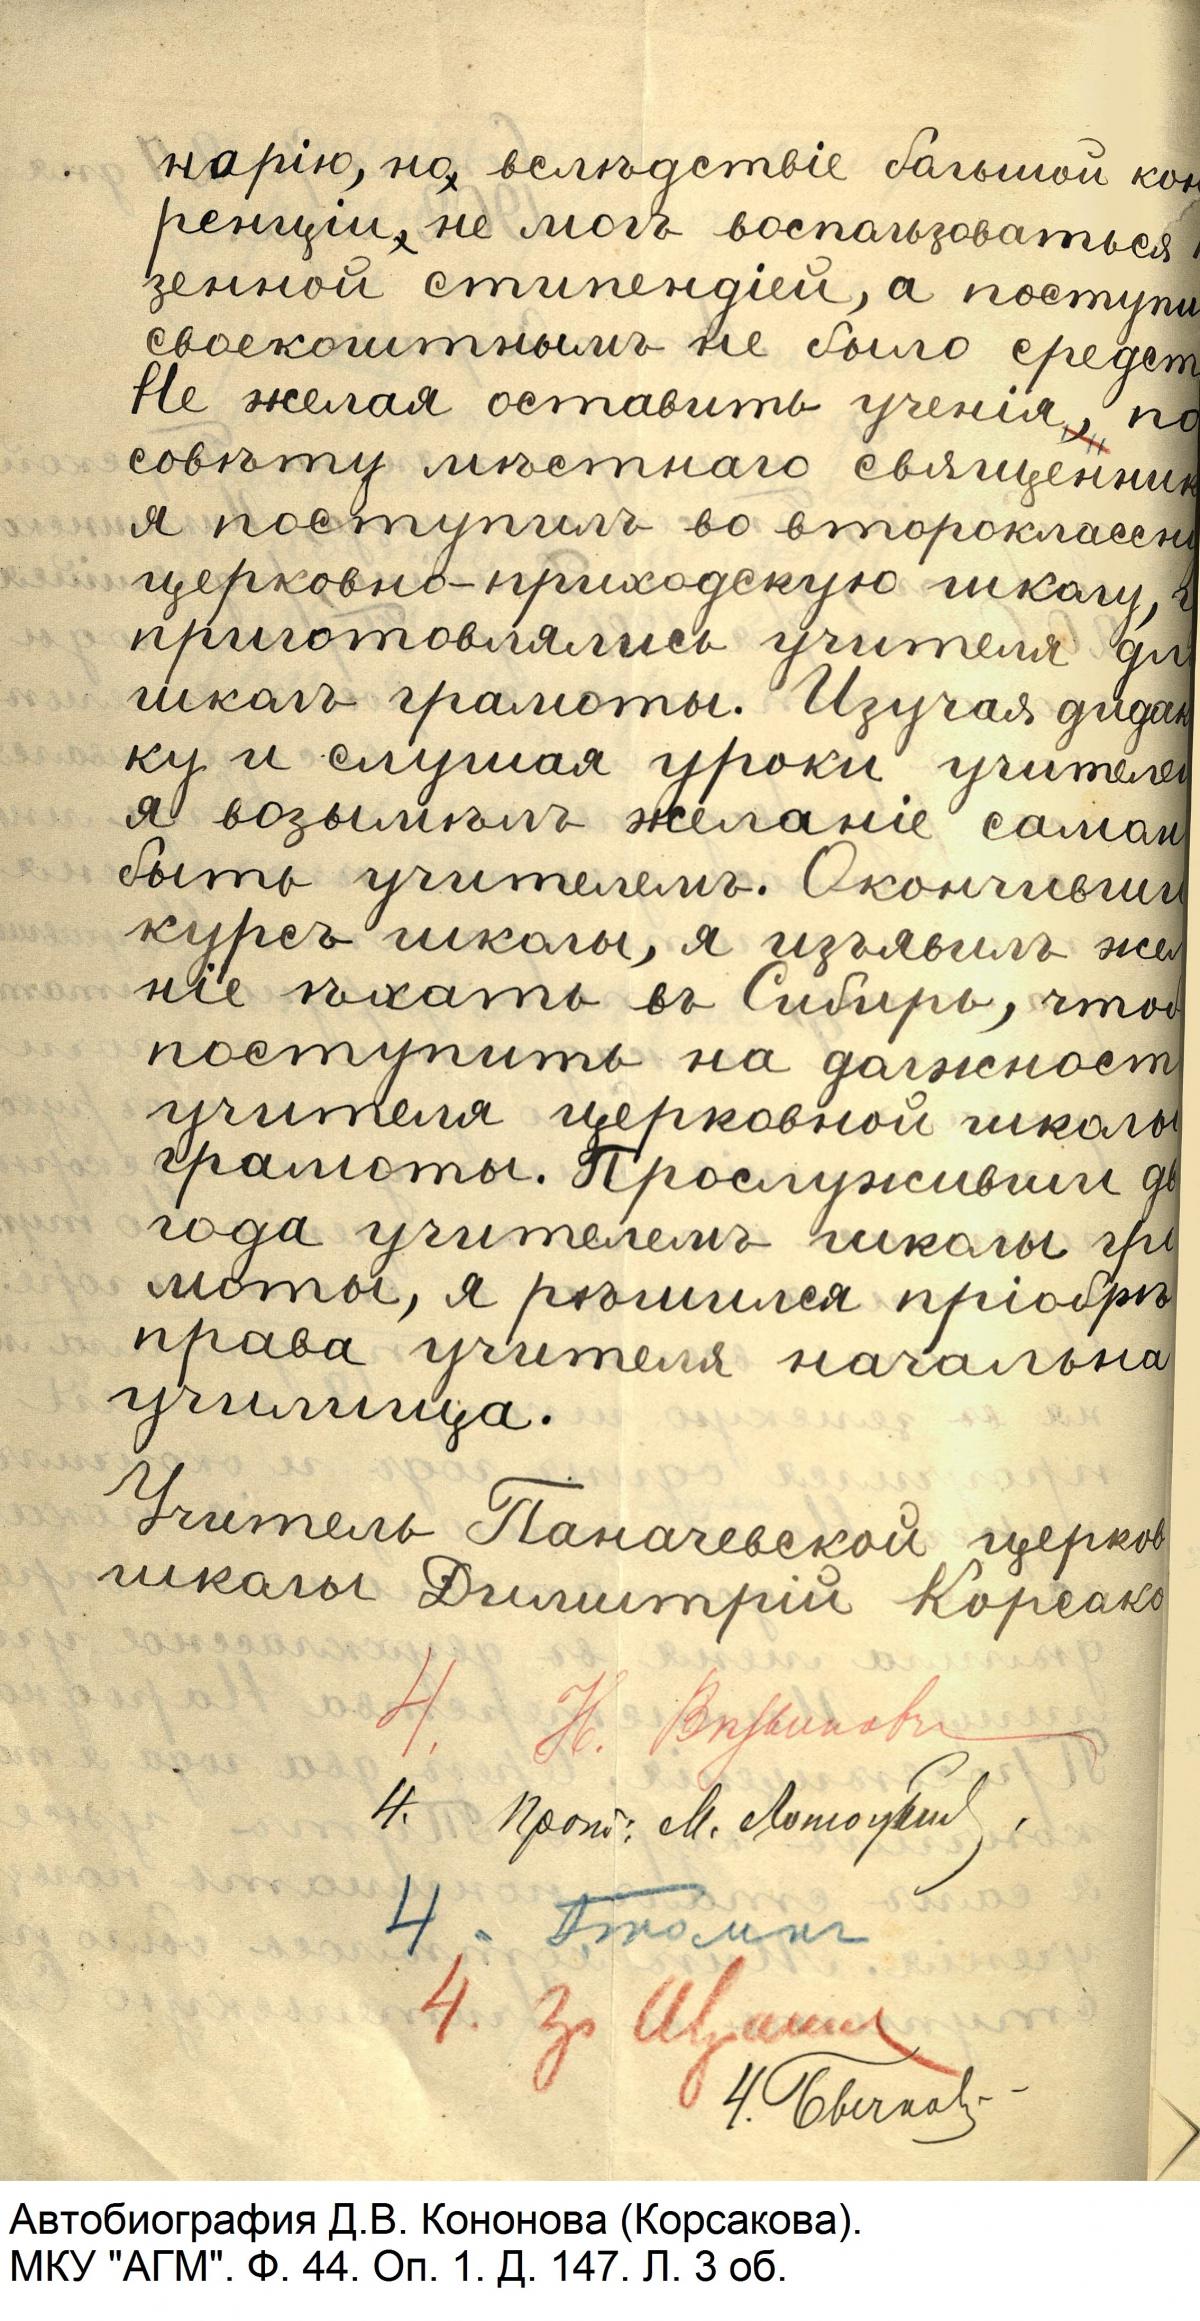 нарію, но, вслѣдствіе большой кон
ренціи, не могъ воспользоваться
зенной стипендіей, а поступи
своекоштнымъ не было средст
Не желая оставить ученія, по
совѣту мѣстнаго священник
я поступилъ во второклассн
церковно-приходскую школу,
приготовлялись учителя дл
школъ грамоты. Изучая дидак
ку и слушая уроки учителе
я возымѣлъ желаніе самом
быть учителемъ. Окончивши
курсъ школы, я изъявилъ жел
ніе ѣхать въ Сибирь, чтоб
поступить на должност
учителя церковной школы
грамоты. Прослуживши дв
года учителемъ школы гра
моты, я рѣшился пріобрѣ
права учителя начальна
училища.
Учитель Паначевской церков
школы Димитрій Корсако
4. Н.
4. Прот: М. Лотоцкій
4.
4. За
4.
Автобиография Д.В. Кононова (Корсакова).
МКУ "АГМ". Ф. 44. Оп. 1. Д. 147. Л. 3 об.